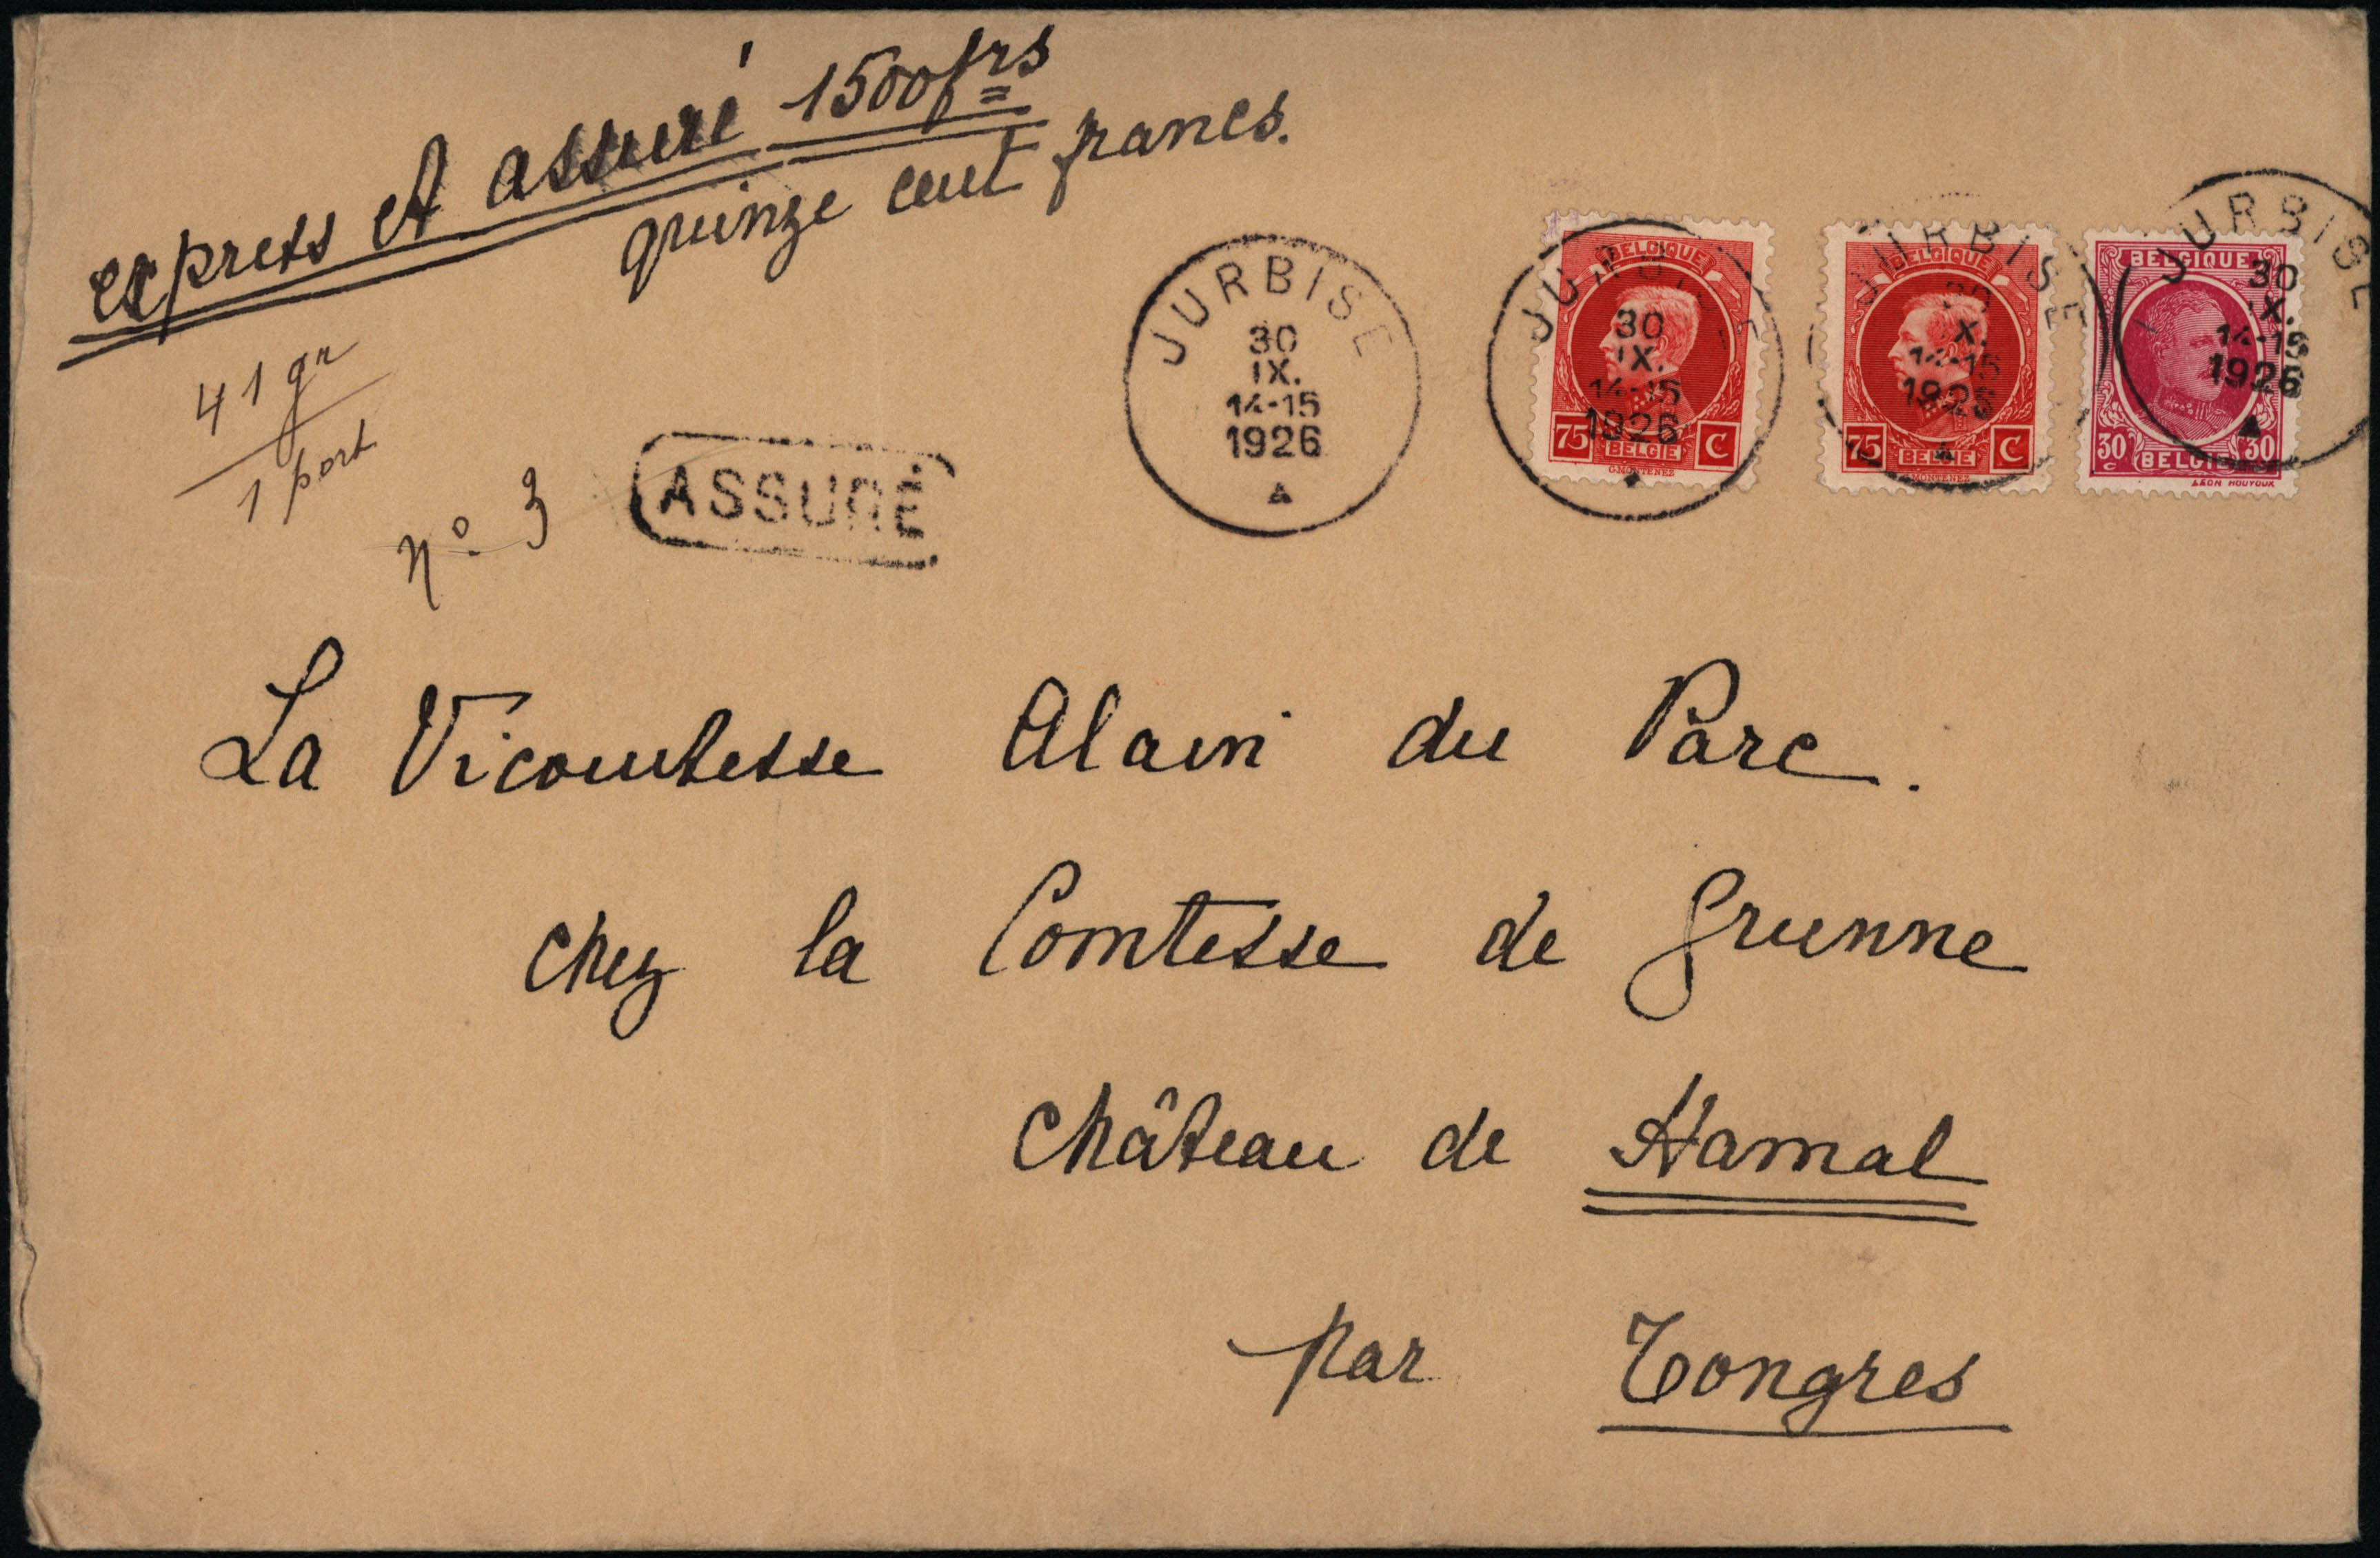 express et assuré 1500 frs
quinze cent francs.
41 gr
1 port
n° 3
ASSURÉ
JURBISE
30
IX.
14-15
1926
BELGIQUE
JURBISE
30
IX.
14-15
1926
75 C
BELGIE
G.MONTENEZ
BELGIQUE
JURBISE
30
IX.
14-15
1926
75 C
BELGIE
G.MONTENEZ
JURBISE
BELGIQUE
30
IX.
14-15
1926
30 c 30
BELGIE
LEON HOUYOUX
La Vicomtesse Alain du Parc.
chez la Comtesse de Grunne
château de Hamal
par Tongres